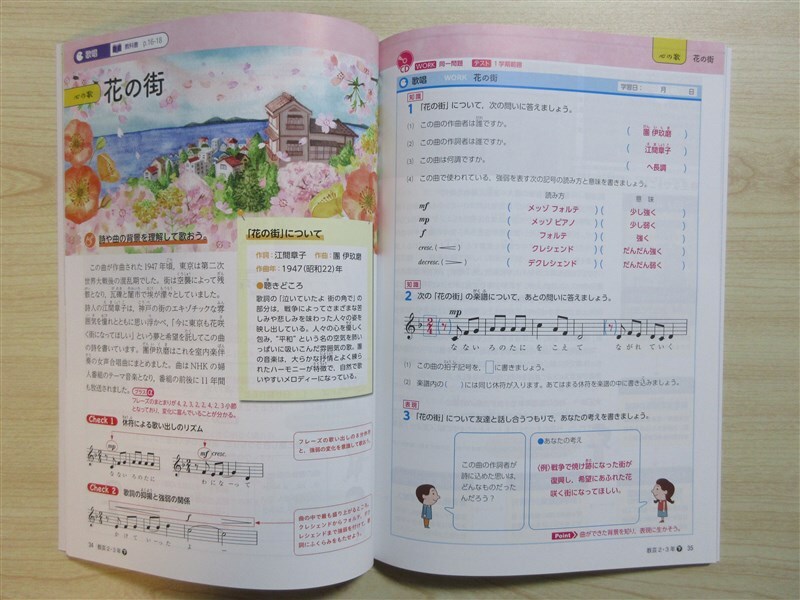 歌唱 教科書 p.16-18
心の歌
花の街
詩や曲の背景を理解して歌おう。
この曲が作曲された1947年頃、東京は第二次
世界大戦後の混乱期でした。街は空襲によって残
骸となり、瓦礫と闇市で埃が濛々としていました。
詩人の江間章子は、神戸の街のエキゾチックな雰
囲気を憧れとともに思い浮かべ、「今に東京も花咲
く街になってほしい」という夢と希望を託してこの曲
の詩を書いています。團伊玖磨はこれを室内楽伴
奏の女声合唱曲にまとめました。曲はNHKの婦
人番組のテーマ音楽となり、番組の前後に11年間
も放送されました。
フレーズのまとまりが4, 2, 3, 2, 4, 2, 3小節
となっており、変化に富んでいることが分かる。
「花の街」について
作詞:江間章子 作曲:團 伊玖磨
作曲年:1947(昭和22)年
●聴きどころ
歌詞の「泣いていたよ 街の角で」の
部分は、戦争によってさまざまな苦
しみや悲しみを味わった人々の姿を
映し出している。人々の心を優しく
包み、“平和”という名の空気を胸い
っぱいに吸いこんだ雰囲気の歌。團
の音楽は、大らかな抒情とよく練ら
れたハーモニーが特徴で、自然で歌
いやすいメロディーになっている。
Check 1 休符による歌い出しのリズム
mp
なないろのたにを
mf cresc.
わになって
Check 2 歌詞の抑揚と強弱の関係
かけていったよ
38 教芸2・3年下
CD WORK 問一問題 テスト 1学期範囲
心の歌 花の街
歌唱 WORK 花の街
学習日: 月 日
知識
1 「花の街」について、次の問いに答えましょう。
(1) この曲の作曲者は誰ですか。 ( 團 伊玖磨 )
(2) この曲の作詞者は誰ですか。 ( 江間章子 )
(3) この曲は何調ですか。 ( ヘ長調 )
(4) この曲で使われている、強弱を表す次の記号の読み方と意味を書きましょう。
読み方 意 味
mf ( メッゾ フォルテ ) ( 少し強く )
mp ( メッゾ ピアノ ) ( 少し弱く )
f ( フォルテ ) ( 強く )
cresc. ( クレシェンド ) ( だんだん強く )
decresc. ( デクレシェンド ) ( だんだん弱く )
知識
2 次の「花の街」の楽譜について、あとの問いに答えましょう。
mp
なないろのたにをこえて ながれていく
(1) この曲の拍子記号を、□に書きましょう。
(2) 楽譜内の( )には同じ休符が入ります。あてはまる休符を楽譜の中に書き込みましょう。
表現
3 「花の街」について友達と話し合うつもりで、あなたの考えを書きましょう。
この曲の作詞者が
詩に込めた思いは、
どんなものだった
んだろう?
●あなたの考え
(例)戦争で焼け跡になった街が
復興し、希望にあふれた花
咲く街になってほしい。
Point 曲ができた背景を知り、表現に生かそう。
教芸2・3年下 39